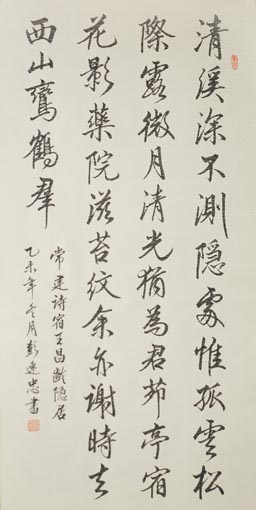 清溪深不測隐處惟孤雲松
際露微月清光猶為君茆亭宿
花影藥院滋苔紋余亦謝時去
西山鸞鶴羣
常建诗宿王昌齡隐居
乙未年冬月彭運忠書